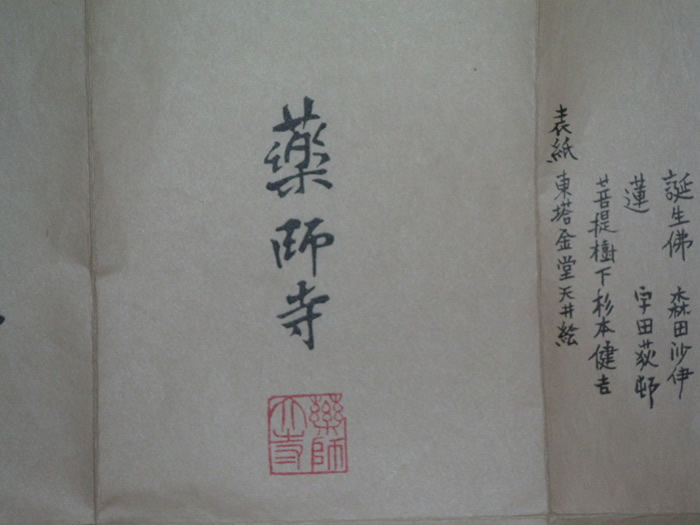 誕生佛 森田沙伊
蓮 宇田荻邨
菩提樹下 杉本健吉
表紙 東塔金堂天井絵
藥師寺
藥師
寺